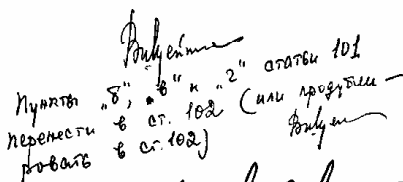 Пункты „б“, „в“ и „г“ статьи 101
перенести в ст. 102 (или продубли-
ровать в ст. 102)